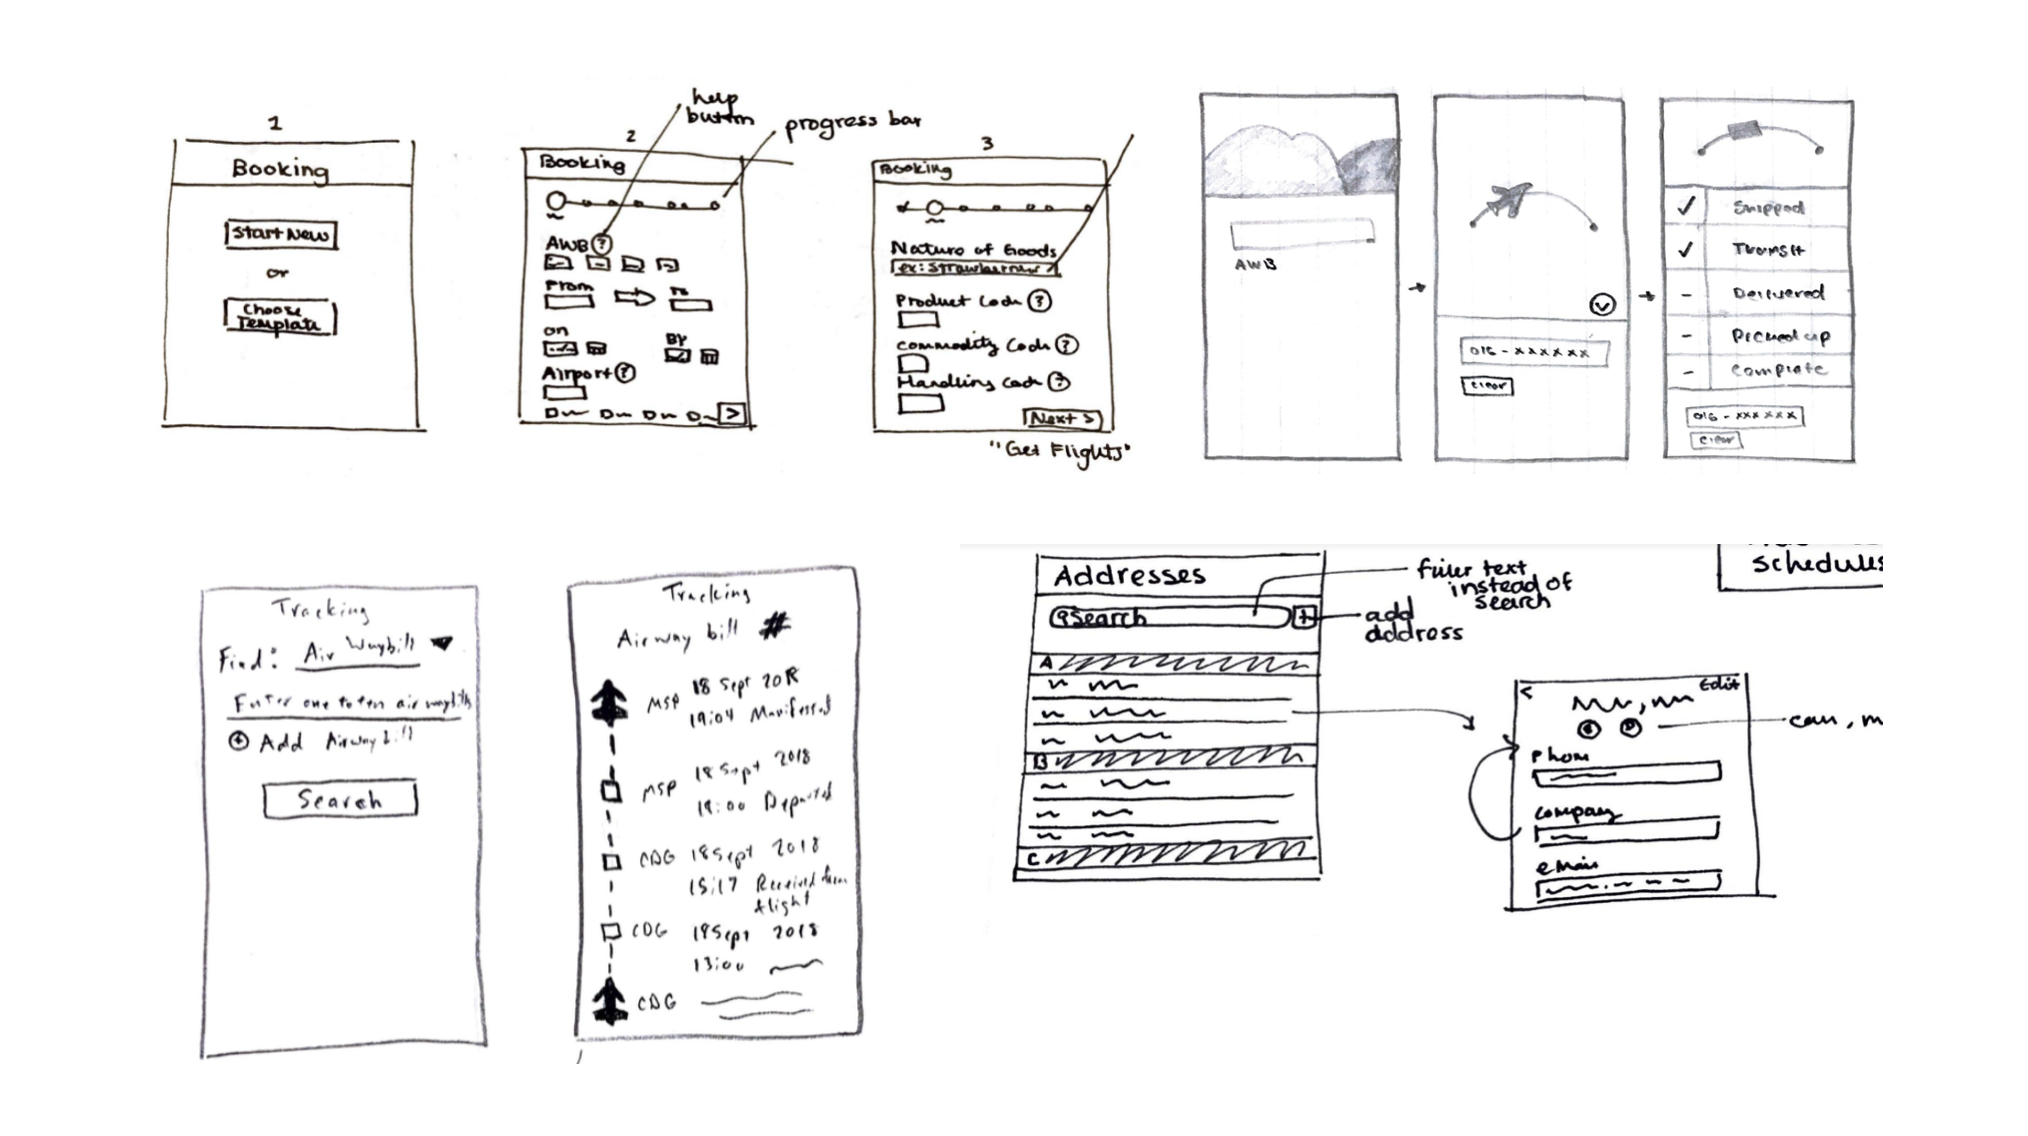 1
Booking
Start New
or
Choose
Template
help
button
progress bar
2
Booking
AWB ?
From
To
on
By
Airport ?
>
3
Booking
Nature of Goods
ex: Strawberries
Product Code ?
Commodity Code ?
Handling Code ?
Next >
"Get Flights"
AWB
016 - xxxxxx
clear
Shipped
Transit
Delivered
Picked up
Complete
016 - xxxxxx
clear
Tracking
Find: Air Waybill
Enter one to ten air waybills
+ Add Airwaybill
Search
Tracking
Airway bill #
MSP 18 Sept 2018
19:04 Manifested
MSP 18 Sept 2018
18:00 Departed
CDG 18 Sept 2018
15:17 Received from
flight
CDG 18 Sept 2018
13:00
CDG
Addresses
Search
+
filler text
instead of
search
add
address
A
B
C
schedules
<
Edit
Phone
Company
email